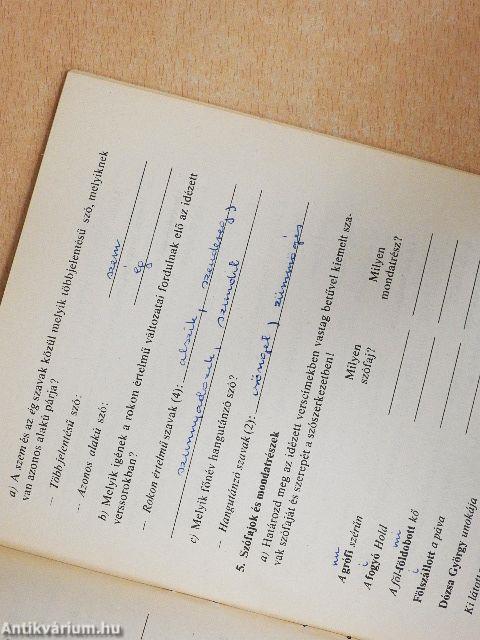 a) A szem és az ég szavak közül melyik többjelentésű szó, melyiknek
van azonos alakú párja?
— Többjelentésű szó: szem
— Azonos alakú szó: ég
b) Melyik igének a rokon értelmű változatai fordulnak elő az idézett
verssorokban?
— Rokon értelmű szavak (4): alszik, szendereg,
szunnyadozik, szundít
c) Melyik főnév hangutánzó szó?
— Hangutánzó szavak (2): zümmögés
5. Szófajok és mondatrészek
a) Határozd meg az idézett verscímekben vastag betűvel kiemelt sza-
vak szófaját és szerepét a szószerkezetben!
Milyen szófaj? Milyen mondatrész?
mn
A grófi szérűn
i
A fogyó Hold
mi
A föl-földobott kő
i
Fölszállott a páva
Dózsa György unokája
Ki látott
Antikvárium.hu